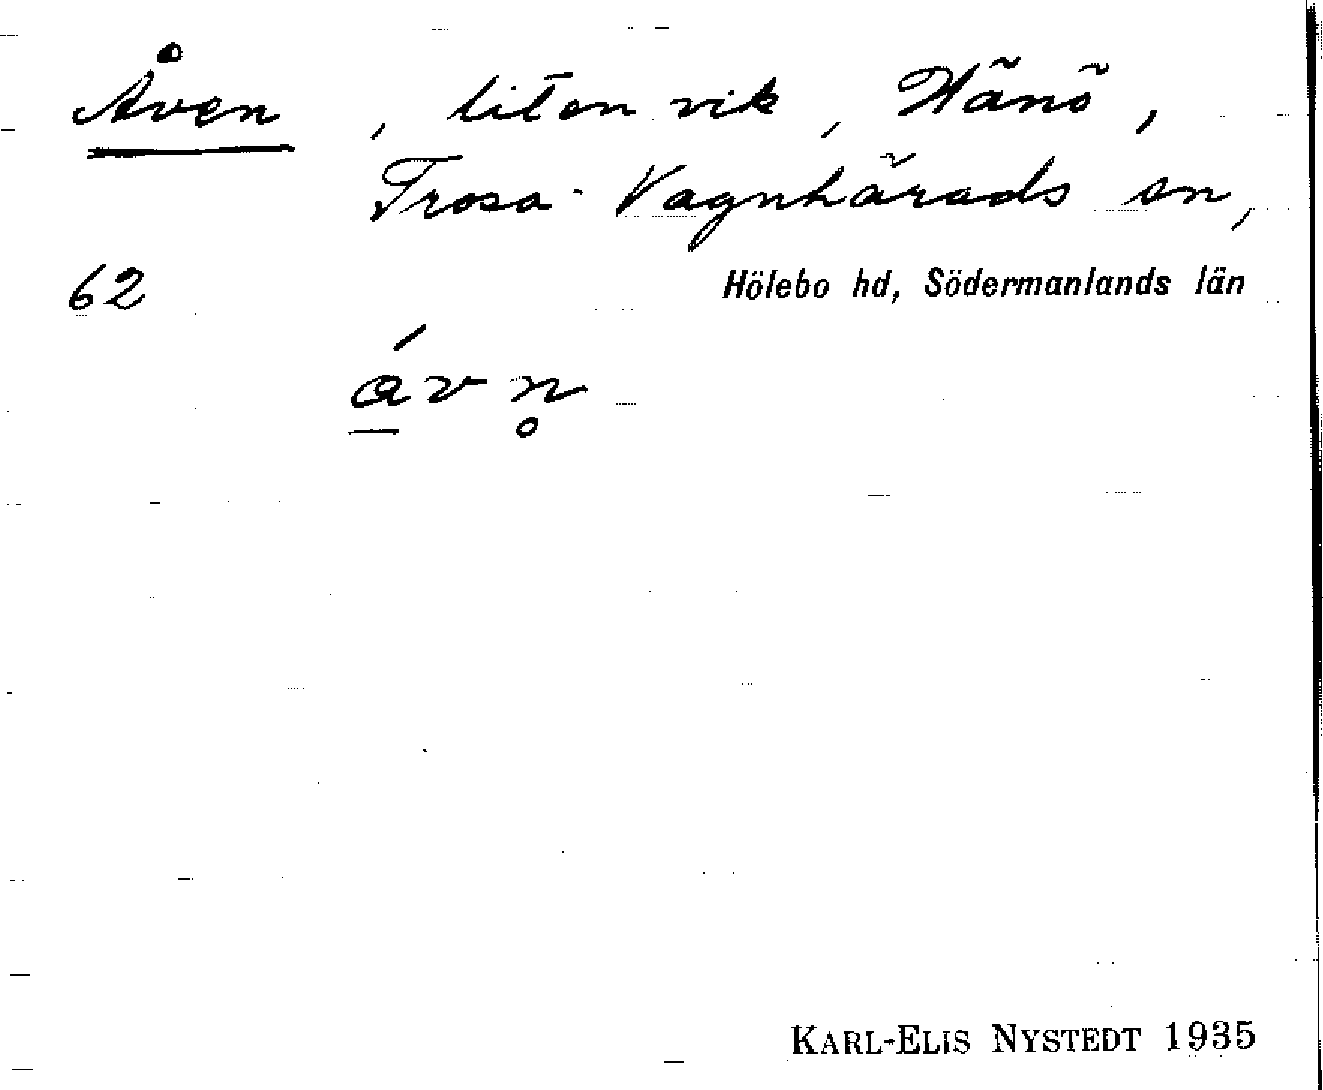 Åven, liten vik, Hänö,
Trosa-Vagnhärads sn,
62 Hölebo hd, Södermanlands län
á̱vn̥
KARL-ELIS NYSTEDT 1935